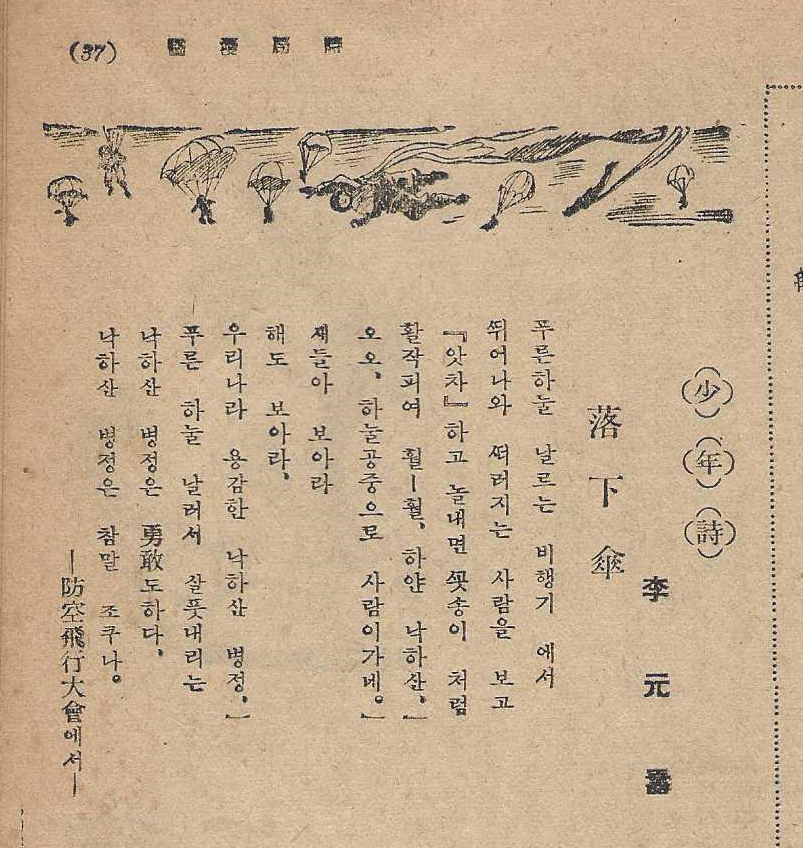 (37)
少年詩
落下傘
李元
푸른하눌 날르는 비행기 에서
뛰어나와 ᄯᅥ러지는 사람을 보고
『앗차』하고 놀내면 ᄭᅩᆺ송이 처럼
활작피여 훨―훨, 하얀 낙하산,」
오오, 하눌공중으로 사람이가네。」
새들아 보아라
해도 보아라,
우리나라 용감한 낙하산 병정,」
푸른 하눌 날러서 살풋내리는
낙하산 병정은 勇敢도하다,
낙하산 병정은 참말 조쿠나。
―防空飛行大會에서―